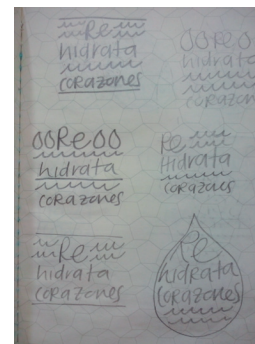 Re
hidrata
corazones
Re
hidrata
corazones
Re
hidrata
corazones
Re
Hidrata
corazones
Re
hidrata
corazones
Re
hidrata
corazones